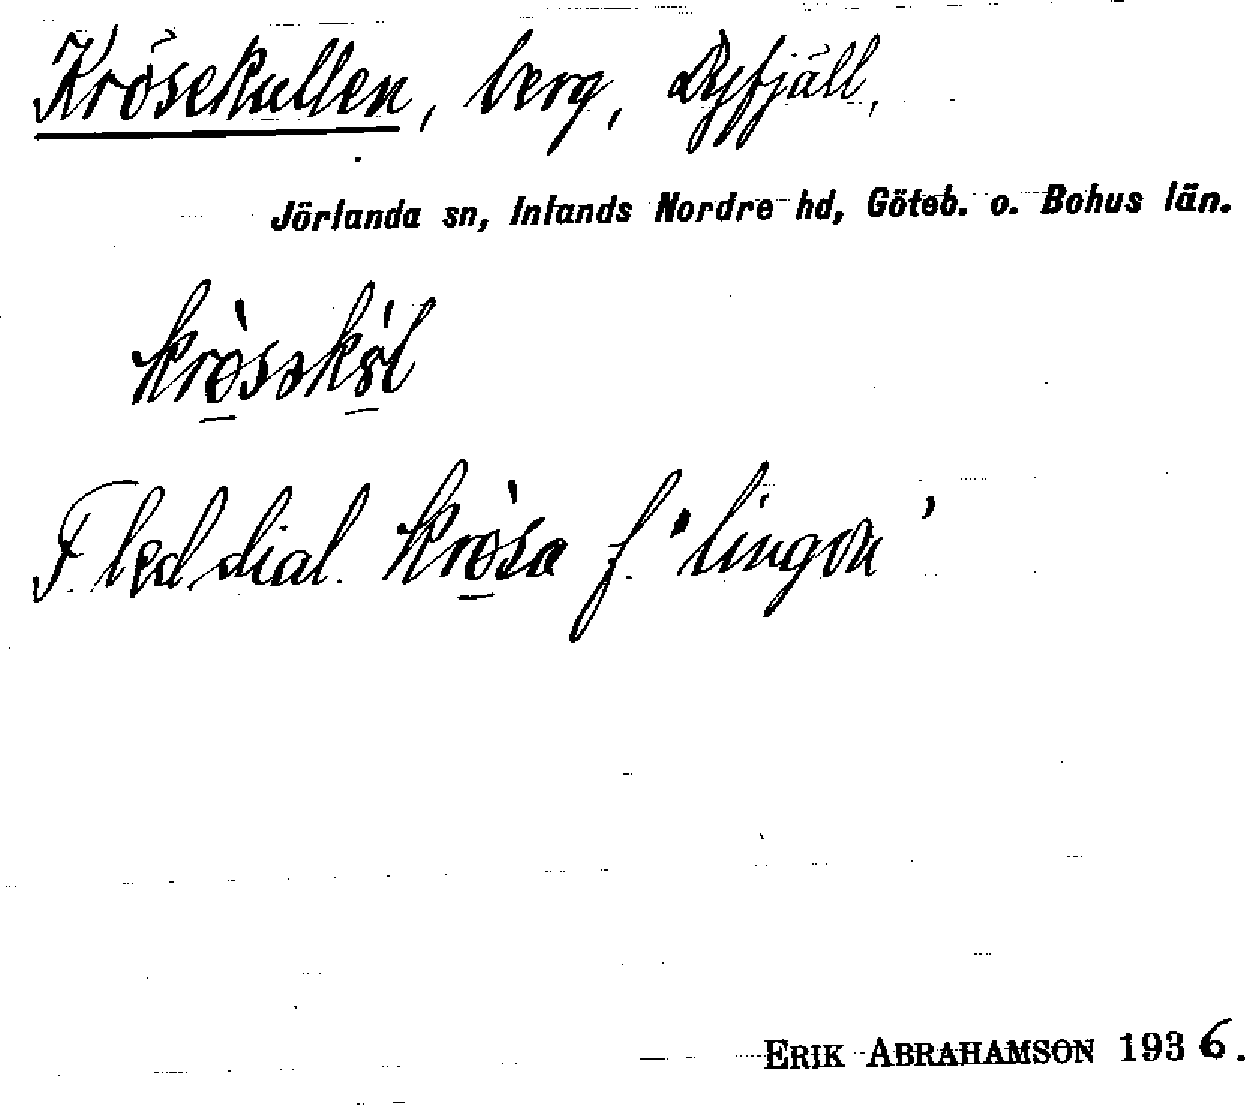 Krösekullen, berg, Dyfjäll,
Jörlanda sn, Inlands Nordre hd, Göteb. o. Bohus län.
Fled dial. krösa f. 'lingon'
ERIK ABRAHAMSON 1936.